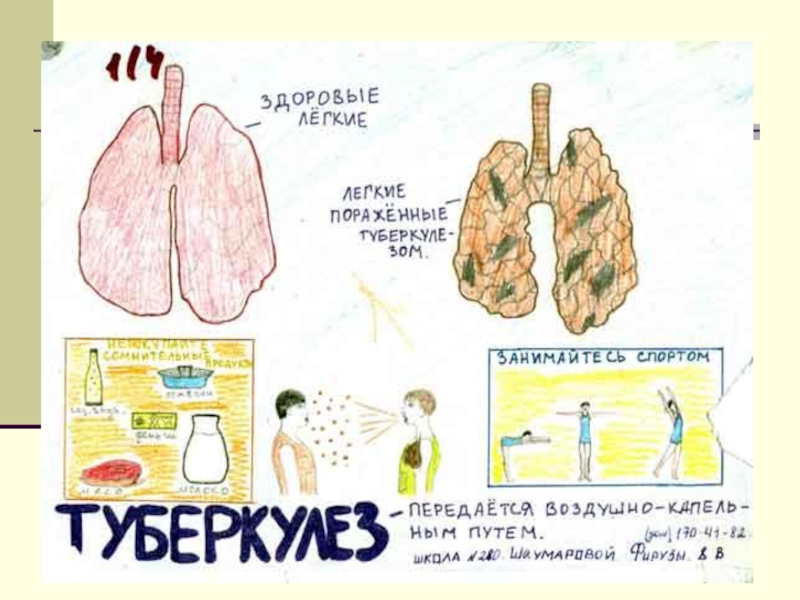 1/4
ЗДОРОВЫЕ
ЛЁГКИЕ
ЛЕГКИЕ
ПОРАЖЁННЫЕ
ТУБЕРКУЛЕ-
ЗОМ.
НЕПОКУПАЙТЕ
СОМНИТЕЛЬНЫЕ
ПРОДУКТЫ
мясо
молоко
ЗАНИМАЙТЕСЬ СПОРТОМ
ТУБЕРКУЛЕЗ - ПЕРЕДАЁТСЯ ВОЗДУШНО-КАПЕЛЬ-
НЫМ ПУТЕМ. (дом) 170-41-82
ШКОЛА №280. ШАУМАРОВОЙ ФИРУЗЫ. 8 В